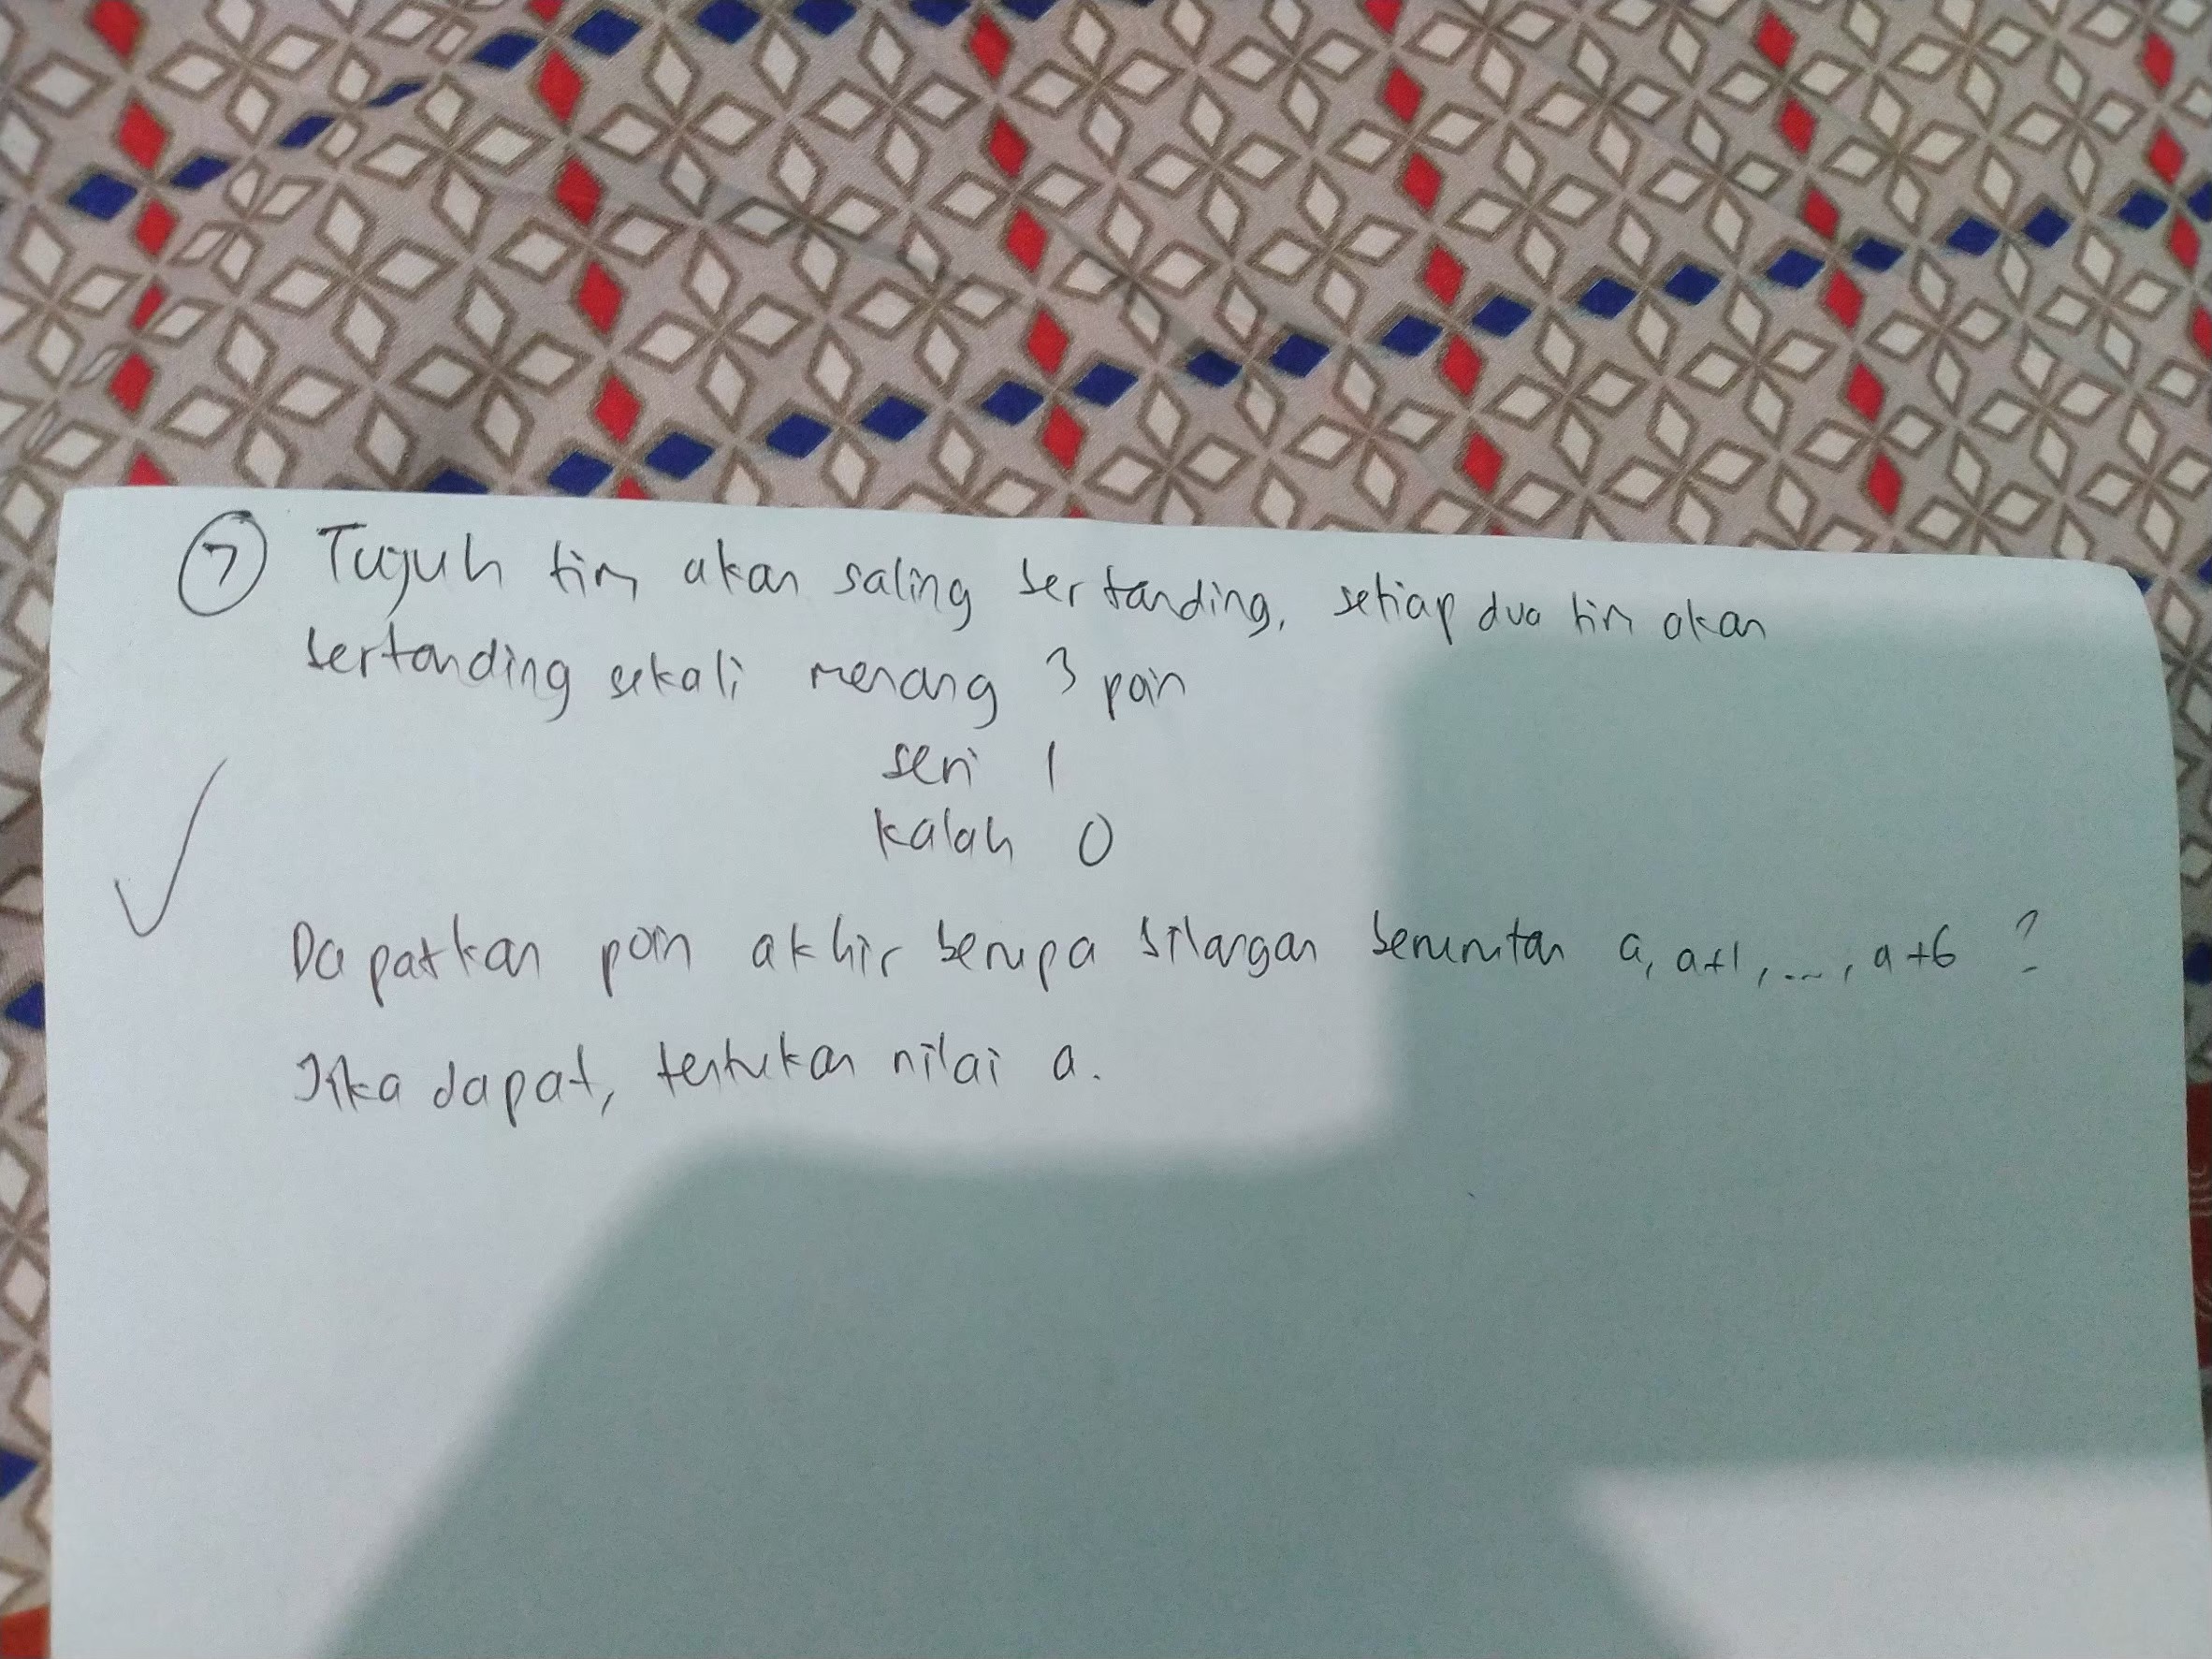 7 Tujuh tim akan saling bertanding, setiap dua tim akan
bertanding sekali menang 3 poin
seri 1
kalah 0
Dapatkan poin akhir berupa bilangan berurutan a, a+1, ..., a+6 ?
Jika dapat, tentukan nilai a.